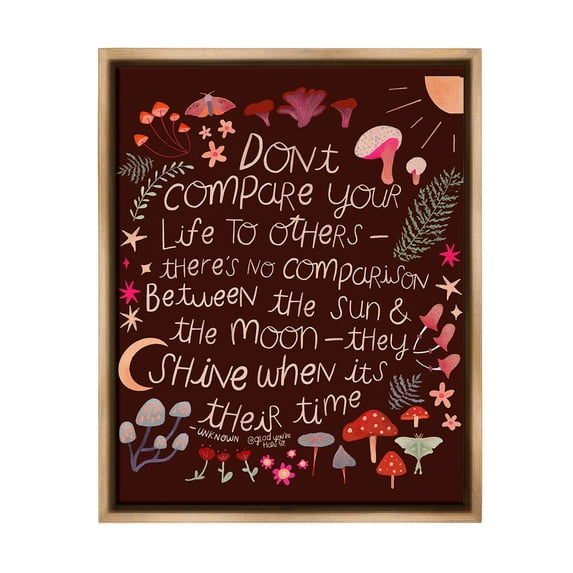 DONt
COMPARE YOUR
LiFE TO OtHERS —
tHERE'S NO COMPARiSON
BEtWEEN tHE SUN &
tHE MOON — tHEy
SHiNE WHEN itS
tHEiR tiME
- UNKNOWN @glad you're
HERE